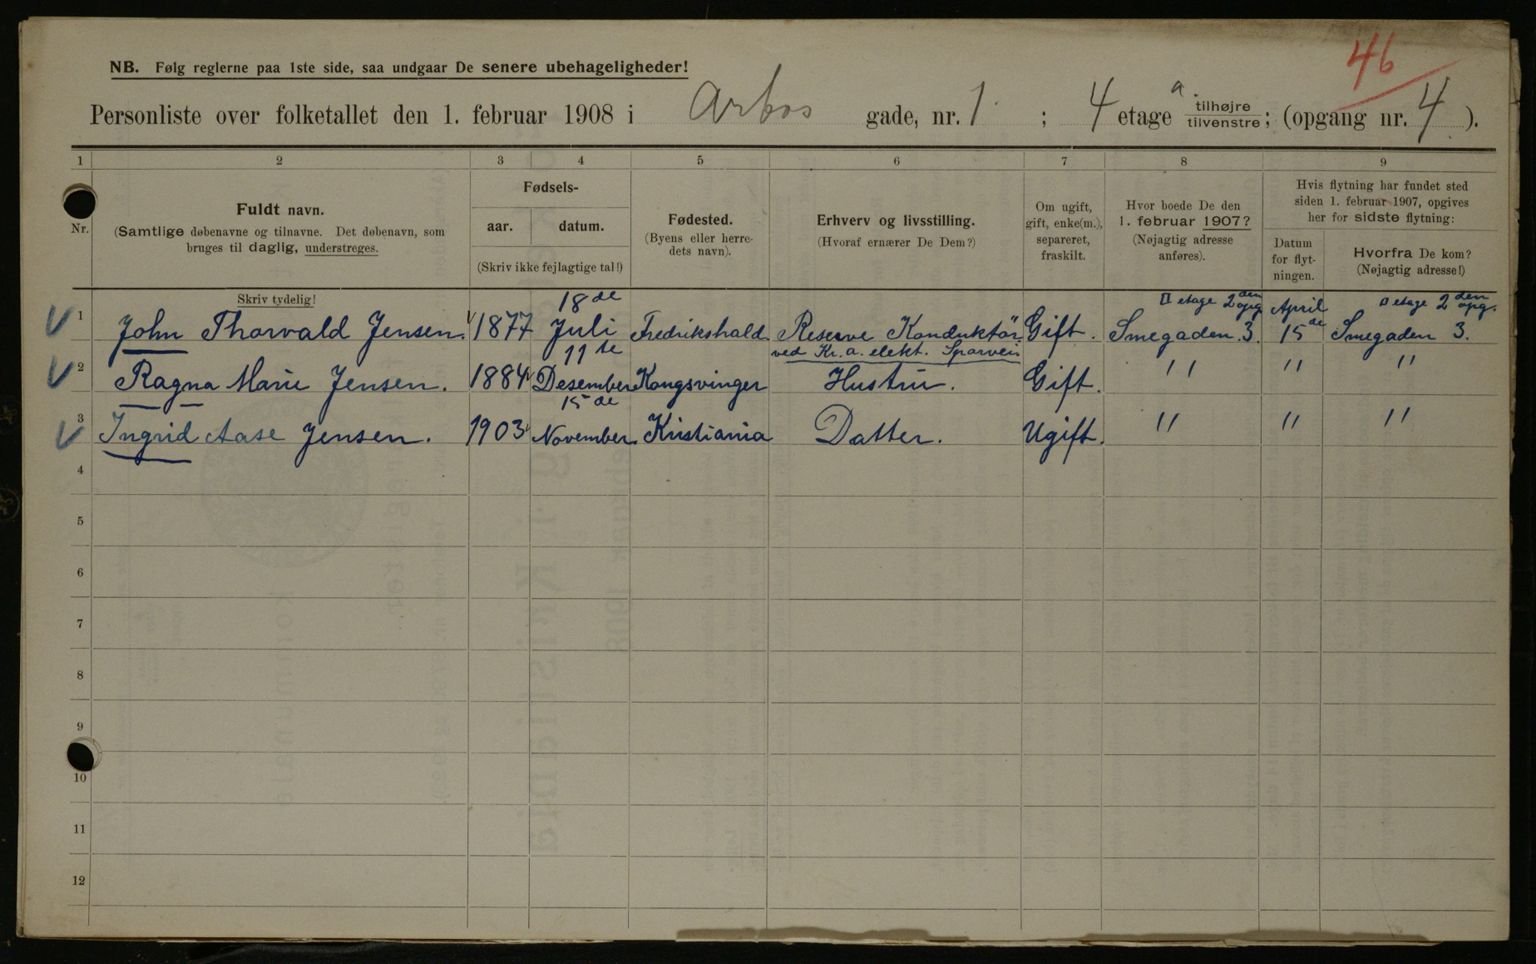 46
NB. Følg reglerne paa 1ste side, saa undgaar De senere ubehageligheder!
Personliste over folketallet den 1. februar 1908 i Arbos gade, nr. 1 ; 4 etage a tilhøjre tilvenstre; (opgang nr. 4 ).
1 2 3 4 5 6 7 8 9
Nr.
Fuldt navn.
(Samtlige døbenavne og tilnavne. Det døbenavn, som
bruges til daglig, understreges.
Skriv tydelig!
Fødsels-
aar. datum.
(Skriv ikke fejlagtige tal!)
Fødested.
(Byens eller herre-
dets navn).
Erhverv og livsstilling.
(Hvoraf ernærer De Dem?)
Om ugift,
gift, enke(m.),
separeret,
fraskilt.
Hvor boede De den
1. februar 1907?
(Nøjagtig adresse
anføres).
Hvis flytning har fundet sted
siden 1. februar 1907, opgives
her for sidste flytning:
Datum
for flyt-
ningen.
Hvorfra De kom?
(Nøjagtig adresse!)
18de etage 2den opg. April etage 2den opg.
1 John Thorvald Jensen. 1877 Juli Fredrikshald Reserve Konduktör Gift. Smegaden 3. 15de Smegaden 3.
11te ved Kr.a. elekt. Sporvei
2 Ragna Marie Jensen. 1884 Desember Kongsvinger Hustru. Gift. " " "
15de
3 Ingrid Aase Jensen. 1903 November Kristiania Datter. Ugift. " " "
4
5
6
7
8
9
10
11
12